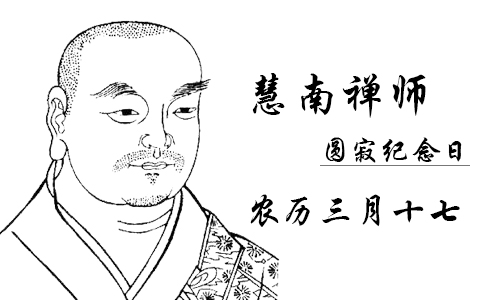 慧南禅师
圆寂纪念日
农历三月十七